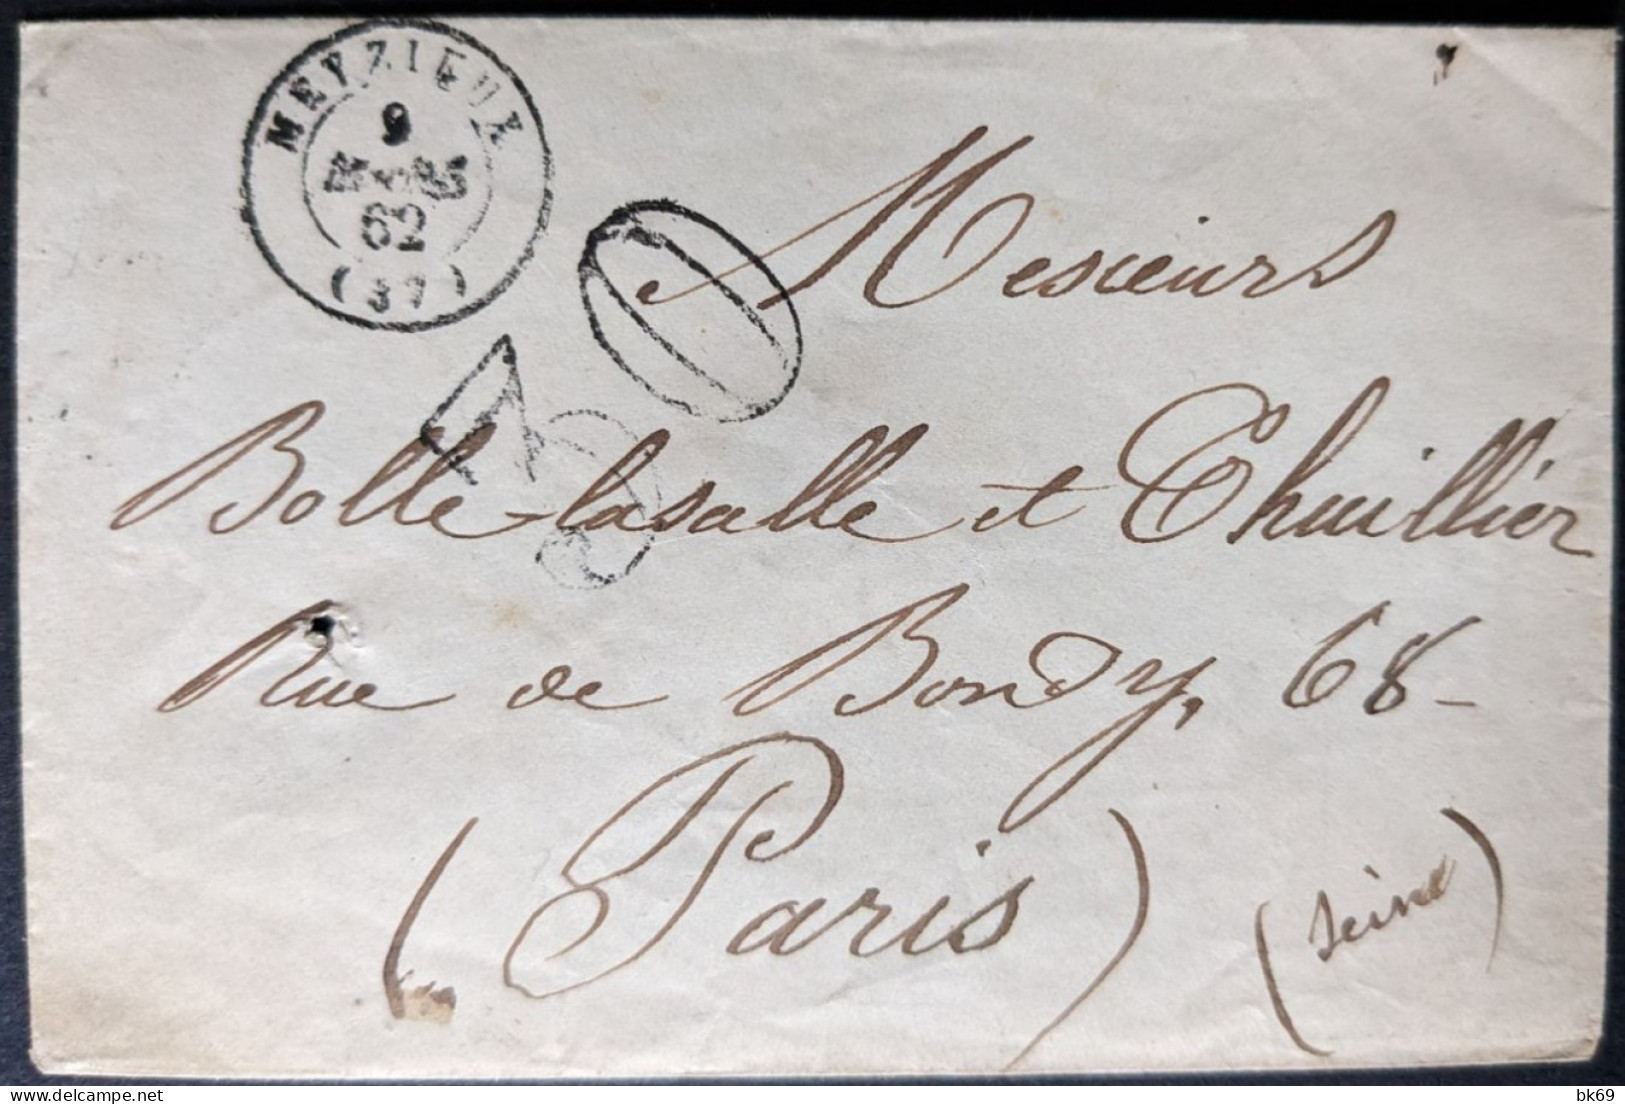 MEYZIEUX
9
MARS
62
(37)
30
Messieurs
Bolle-lasalle et Thuillier
Rue de Bondy, 68-
(Paris)
(Seine)
delcampe.net
bk69